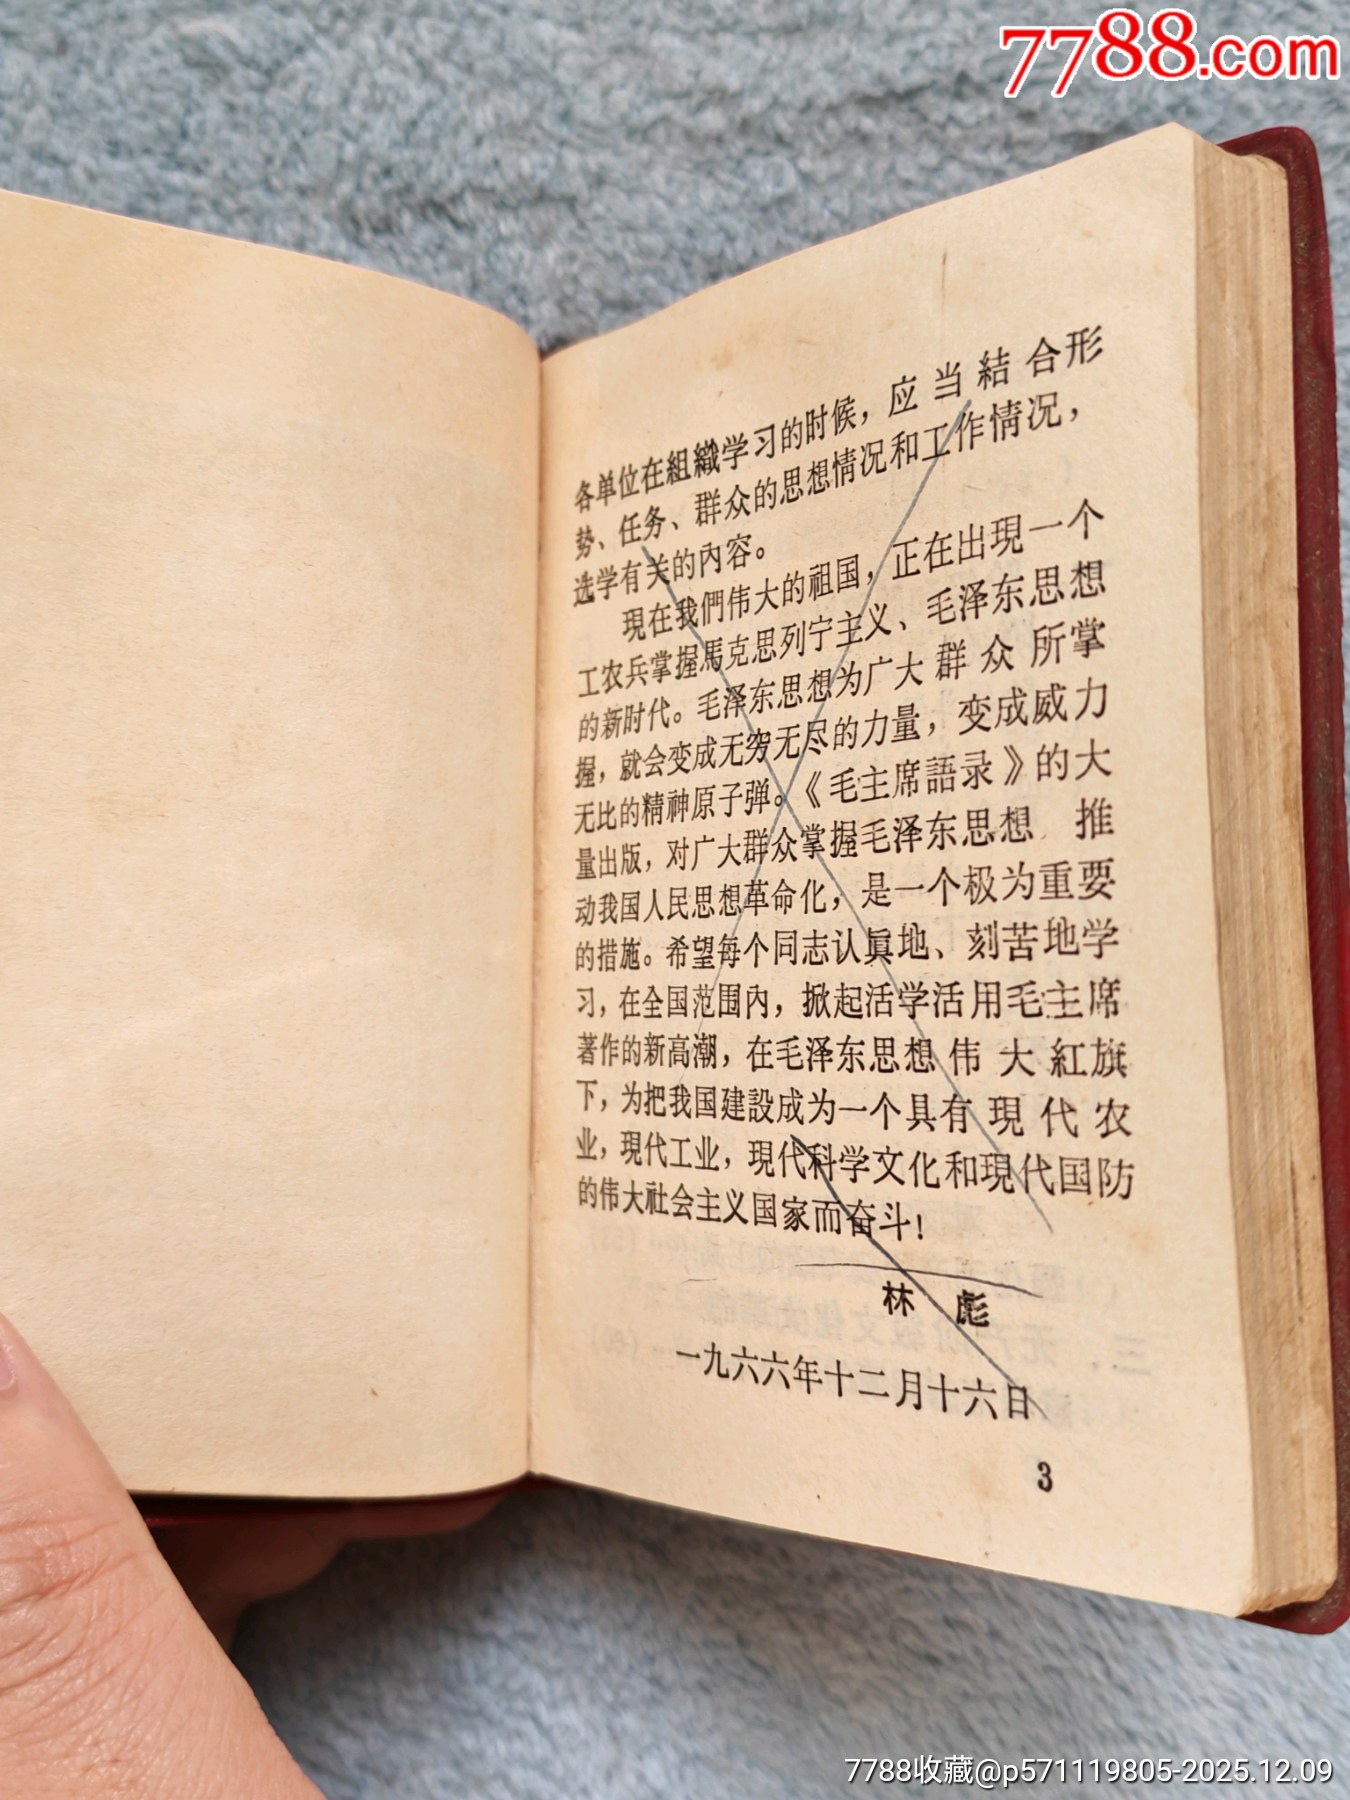 7788.com
各单位在組織学习的时候，应当結合形
势、任务、群众的思想情况和工作情况，
选学有关的内容。
現在我們伟大的祖国，正在出現一个
工农兵掌握馬克思列宁主义、毛泽东思想
的新时代。毛泽东思想为广大群众所掌
握，就会变成无穷无尽的力量，变成威力
无比的精神原子弹。《毛主席語录》的大
量出版，对广大群众掌握毛泽东思想 推
动我国人民思想革命化，是一个极为重要
的措施。希望每个同志认眞地、刻苦地学
习，在全国范围内，掀起活学活用毛主席
著作的新高潮，在毛泽东思想伟大紅旗
下，为把我国建設成为一个具有現代农
业，現代工业，現代科学文化和現代国防
的伟大社会主义国家而奋斗！
林 彪
一九六六年十二月十六日
3
7788收藏@p571119805-2025.12.09